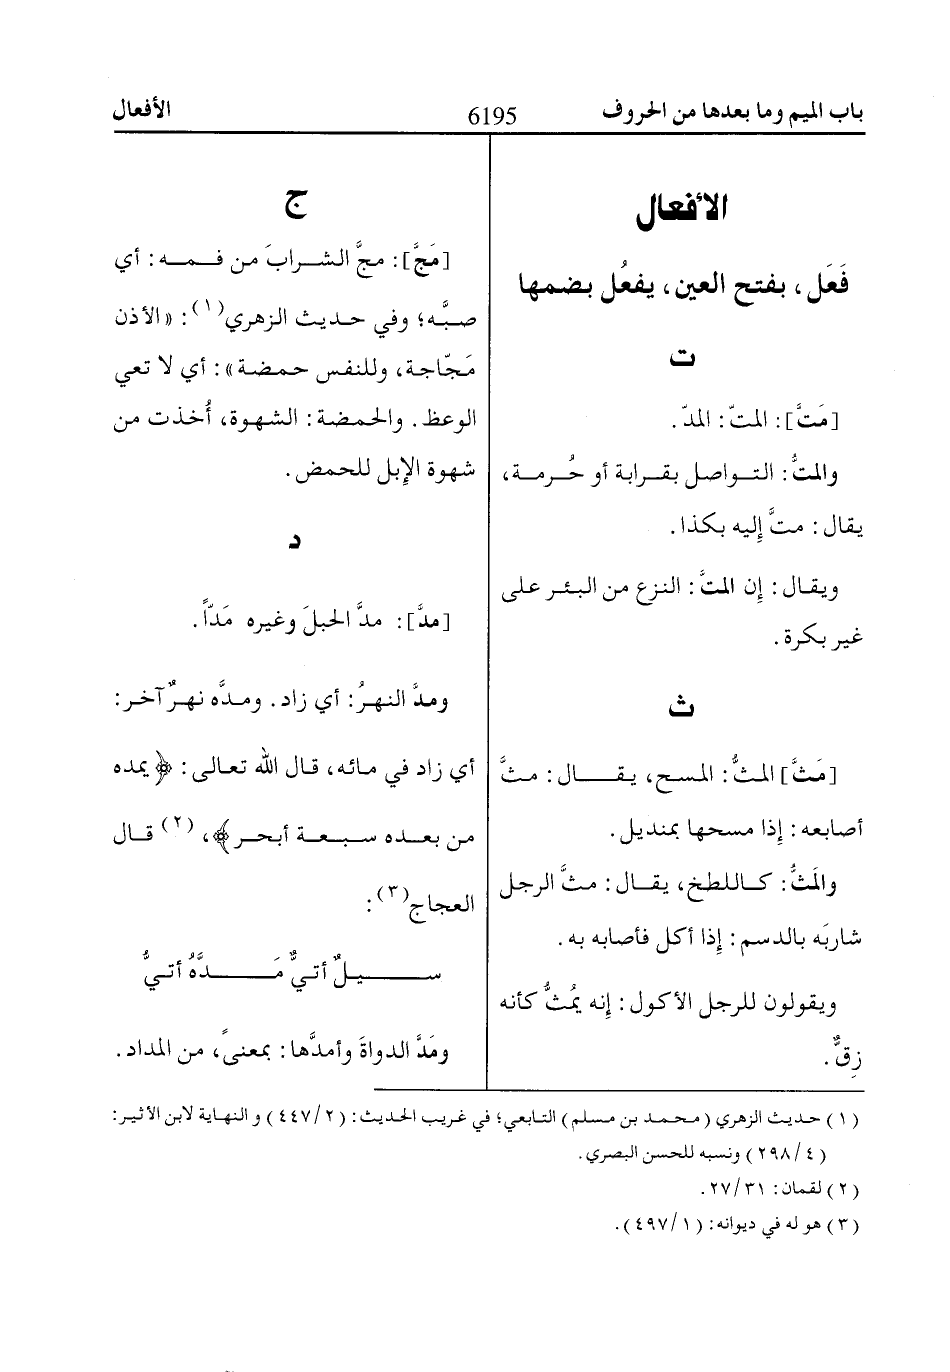 باب الميم وما بعدها من الحروف 6195 الأفعال
الأفعال
فَعَل، بفتح العين، يفعُل بضمها
ت
[مَتَّ]: المتّ: المدّ.
والمتُّ: التواصل بقرابة أو حُرمة،
يقال: متَّ إليه بكذا.
ويقال: إن المتَّ: النزع من البئر على
غير بكرة.
ث
[مَثَّ] المثُّ: المسح، يقال: مثَّ
أصابعه: إذا مسحها بمنديل.
والمَثُّ: كاللطخ، يقال: مثَّ الرجل
شاربَه بالدسم: إذا أكل فأصابه به.
ويقولون للرجل الأكول: إنه يمُثُّ كأنه
زِقٌّ.
ج
[مَجَّ]: مجَّ الشرابَ من فمه: أي
صبَّه؛ وفي حديث الزهري(١): «الأذن
مَجّاجة، وللنفس حمضة»: أي لا تعي
الوعظ. والحمضة: الشهوة، أُخذت من
شهوة الإبل للحمض.
د
[مدَّ]: مدَّ الحبلَ وغيره مَدّاً.
ومدَّ النهرُ: أي زاد. ومدَّه نهرٌ آخر:
أي زاد في مائه، قال الله تعالى: ﴿يمده
من بعده سبعة أبحر﴾،(٢) قال
العجاج(٣):
سيلٌ أتيٌّ مَدَّهُ أتيُّ
ومَدَّ الدواةَ وأمدَّها: بمعنىً، من المداد.
(١) حديث الزهري (محمد بن مسلم) التابعي؛ في غريب الحديث: (٢/٤٤٧) و النهاية لابن الأثير:
(٤/٢٩٨) ونسبه للحسن البصري.
(٢) لقمان: ٣١/٢٧.
(٣) هو له في ديوانه: (١/٤٩٧).